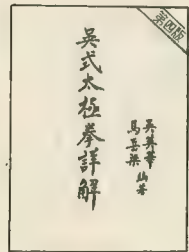 第四版
吳式太極拳詳解
吳英華
馬岳樑
編著